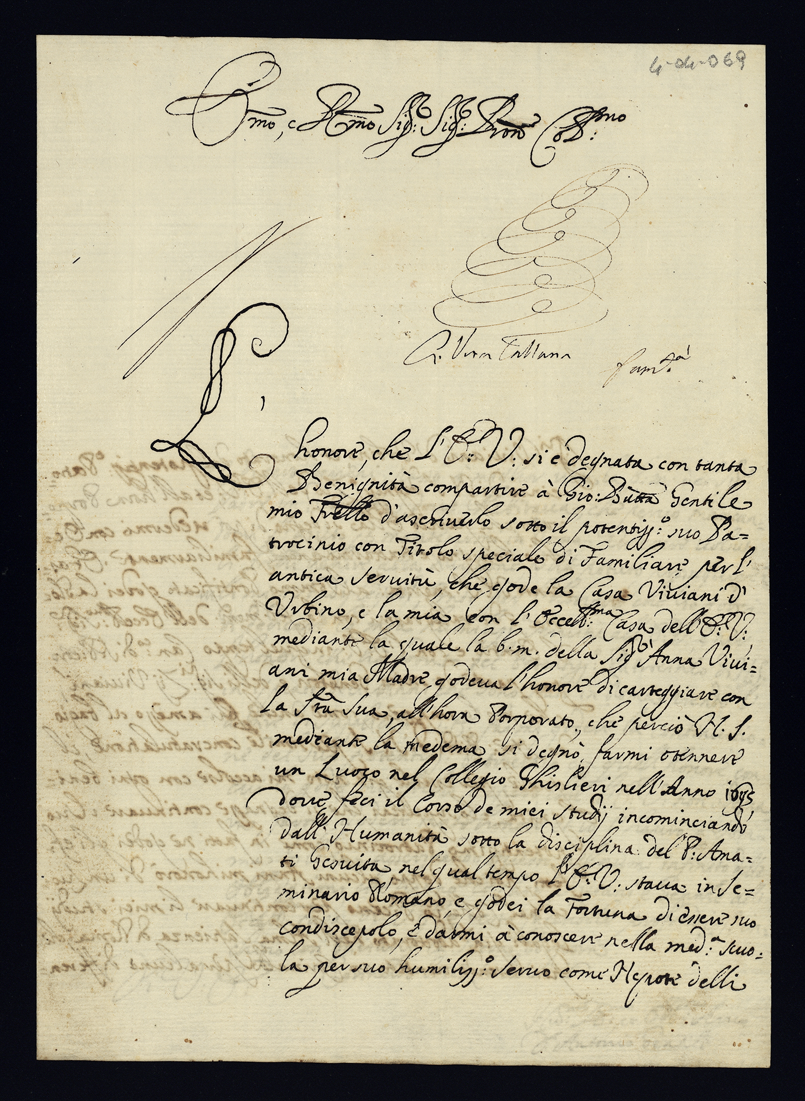 4-04-069
Em̃o, e Rm̃o Sig.r Sig.r Pron̄e Col.mo
fam.a
L'
honore, che L'E: V: si è degnata con tanta
Benignità compartire à Gio: Batta Gentile
mio Frello d'ascriverlo sotto il potentiss.o suo Pa=
trocinio con Titolo speciale di Familiare per l'
antica servitù, che gode la Casa Viviani d'
Urbino, e la mia con l'Eccell.ma Casa dell'E: V:
mediante la quale la b. m. della Sig.ra Anna Vivi=
ani mia Madre godeva l'honore di carteggiare con
la Stà Sua, all'hora Porporato, che perciò N. S.
mediante la medema si degnò, farmi ottenere
un Luogo nel Collegio Ghislieri nell'Anno 1695
dove feci il Corso de miei studij incominciando
dall'Humanità sotto la disciplina del P: Ama=
ti Gesuita nel qual tempo l'E: V: stava in Se=
minario Romano, e godei la Fortuna di essere suo
condiscepolo, e darmi à conoscere nella med.a scuo=
la per suo humiliss.o servo come Nepote delli